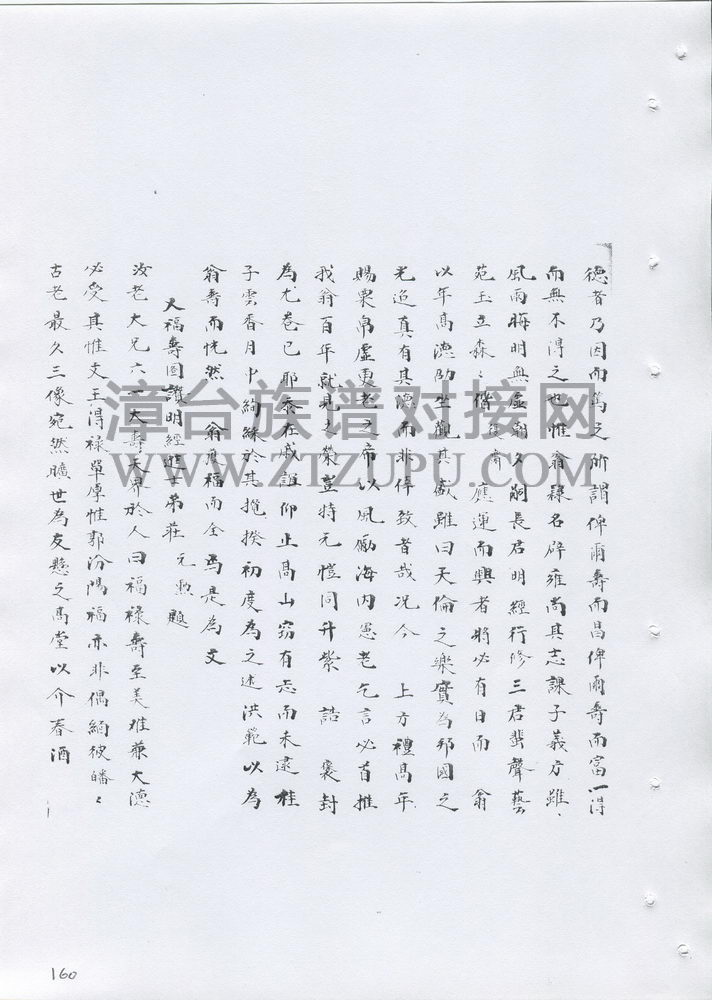 德者乃因而篤之所謂俾爾壽而昌俾爾壽而富一得
而無不得之也惟翁隸名辟雍尚其志課子義方雖、
風雨晦明無虛朝夕嗣長君明經行修三君蜚聲藝
苑玉立森、偕 應運而興者將必有日而 翁
以年高德劭坐觀其盛雖曰天倫之樂實為邦國之
光造真有其德而非倖致者哉况今 上方禮高年
賜粟帛虛更老之席以風勵海内憲老乞言必首推
我翁百年就見之榮豈特元愷同升紫誥褒封
為尤卷已耶泰在戚誼仰止高山窃有志而未逮桂
子雲香月中絢綵於其攬揆初度為之述洪範以為
翁壽而恍然 翁 福而全焉是為文
天福壽圖讚明經進士弟莊元勲題
汝老大兄六一大壽天界於人曰福祿壽至美难兼大德
必受其惟文王得祿單厚惟郭汾陽福亦非偶緬彼皤、
古老最久三像宛然曠世為友懸之高堂以介春酒
漳台族谱对接网
WWW.ZTZUPU.COM
160